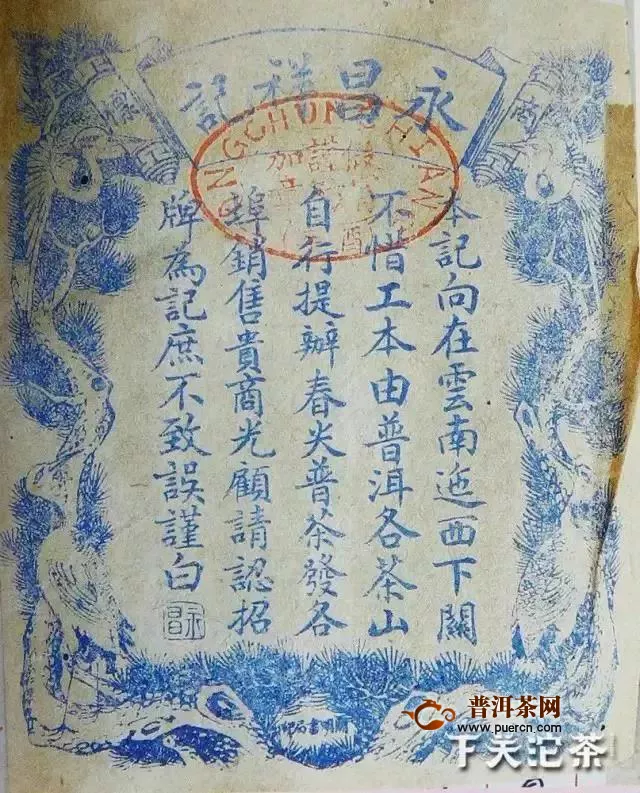 永昌祥記
商
標
YONGCHUNGHSIANG
加
謹
本記向在雲南迤西下關
不惜工本由普洱各茶山
自行提辦春尖普茶發各
埠銷售貴商光顧請認招
牌為記庶不致誤謹白
永昌
普洱茶网
www.puercn.com
下关沱茶